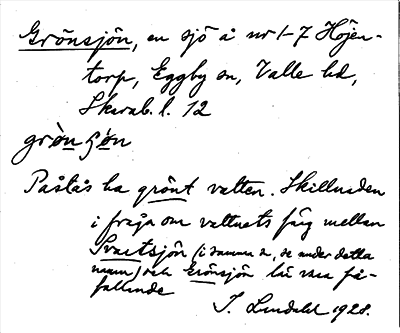 Grönsjön, en sjö å nr 1-7 Höjen-
torp, Eggby sn, Valle hd,
Skarab. l. 12
grò̱n ʃó̱n
Påstås ha grönt vatten. Skillnaden
i fråga om vattnets färg mellan
Svartsjön (i samma s., se under detta
namn) och Grönsjön lär vara på-
fallande
J. Lundahl 1928.